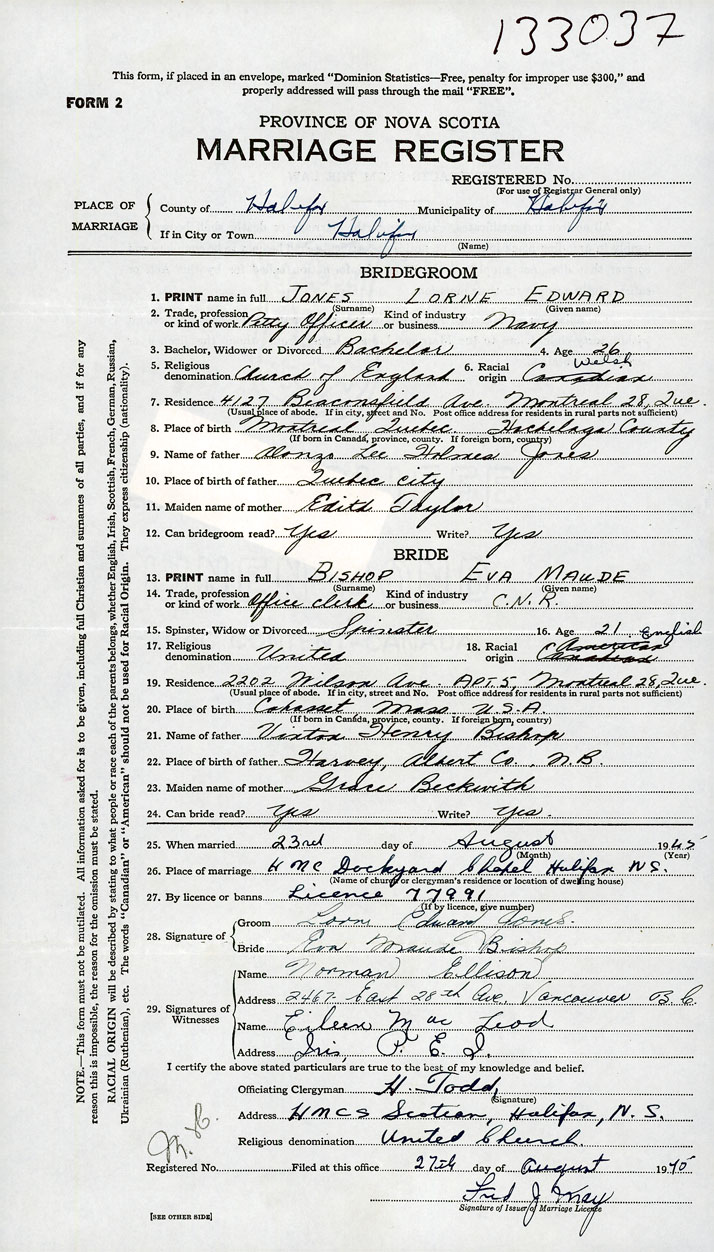 133037
This form, if placed in an envelope, marked "Dominion Statistics—Free, penalty for improper use $300," and
properly addressed will pass through the mail "FREE".
FORM 2
PROVINCE OF NOVA SCOTIA
MARRIAGE REGISTER
REGISTERED No.
(For use of Registrar General only)
PLACE OF MARRIAGE
County of Halifax Municipality of Halifax
If in City or Town Halifax
(Name)
BRIDEGROOM
1. PRINT name in full JONES LORNE EDWARD
(Surname) (Given name)
2. Trade, profession or kind of work Petty Officer Kind of industry or business Navy
3. Bachelor, Widower or Divorced Bachelor 4. Age 26
5. Religious denomination Church of England 6. Racial origin Canadian Welsh
7. Residence 4127 Beaconsfield Ave. Montreal 28, Que.
(Usual place of abode. If in city, street and No. Post office address for residents in rural parts not sufficient)
8. Place of birth Montreal Quebec. Hochelaga County
(If born in Canada, province, county. If foreign born, country)
9. Name of father Alonzo Lee Holmes Jones
10. Place of birth of father Quebec city
11. Maiden name of mother Edith Taylor
12. Can bridegroom read? Yes Write? Yes
BRIDE
13. PRINT name in full BISHOP EVA MAUDE
(Surname) (Given name)
14. Trade, profession or kind of work Office clerk Kind of industry or business C.N.R.
15. Spinster, Widow or Divorced Spinster 16. Age 21
17. Religious denomination United 18. Racial origin American Canadian English
19. Residence 2202 Wilson Ave. APT. 5, Montreal 28, Que.
(Usual place of abode. If in city, street and No. Post office address for residents in rural parts not sufficient)
20. Place of birth Cohasset Mass. U.S.A.
(If born in Canada, province, county. If foreign born, country)
21. Name of father Vinton Henry Bishop
22. Place of birth of father Harvey, Albert Co., N.B.
23. Maiden name of mother Grace Beckwith
24. Can bride read? Yes Write? Yes.
25. When married 23rd day of August 1945
(Month) (Year)
26. Place of marriage H M C Dockyard Chapel Halifax N.S.
(Name of church or clergyman's residence or location of dwelling house)
27. By licence or banns Licence 77991
(If by licence, give number)
28. Signature of
Groom Lorne Edward Jones.
Bride Eva Maude Bishop
29. Signatures of Witnesses
Name Norman Ellison
Address 2467 East 28th Ave, Vancouver B.C.
Name Eileen Mac Leod
Address Iris, P. E. I.
I certify the above stated particulars are true to the best of my knowledge and belief.
Officiating Clergyman H. Todd,
(Signature)
Address HMCS Scotian, Halifax, N.S.
Religious denomination United Church
Registered No. Filed at this office 27th day of August 1945
Fred J May
Signature of Issuer of Marriage Licence
[SEE OTHER SIDE]
NOTE.—This form must not be mutilated. All information asked for is to be given, including full Christian and surnames of all parties, and if for any
reason this is impossible, the reason for the omission must be stated.
RACIAL ORIGIN will be described by stating to what people or race each of the parents belongs, whether English, Irish, Scottish, French, German, Russian,
Ukrainian (Ruthenian), etc. The words "Canadian" or "American" should not be used for Racial Origin. They express citizenship (nationality).